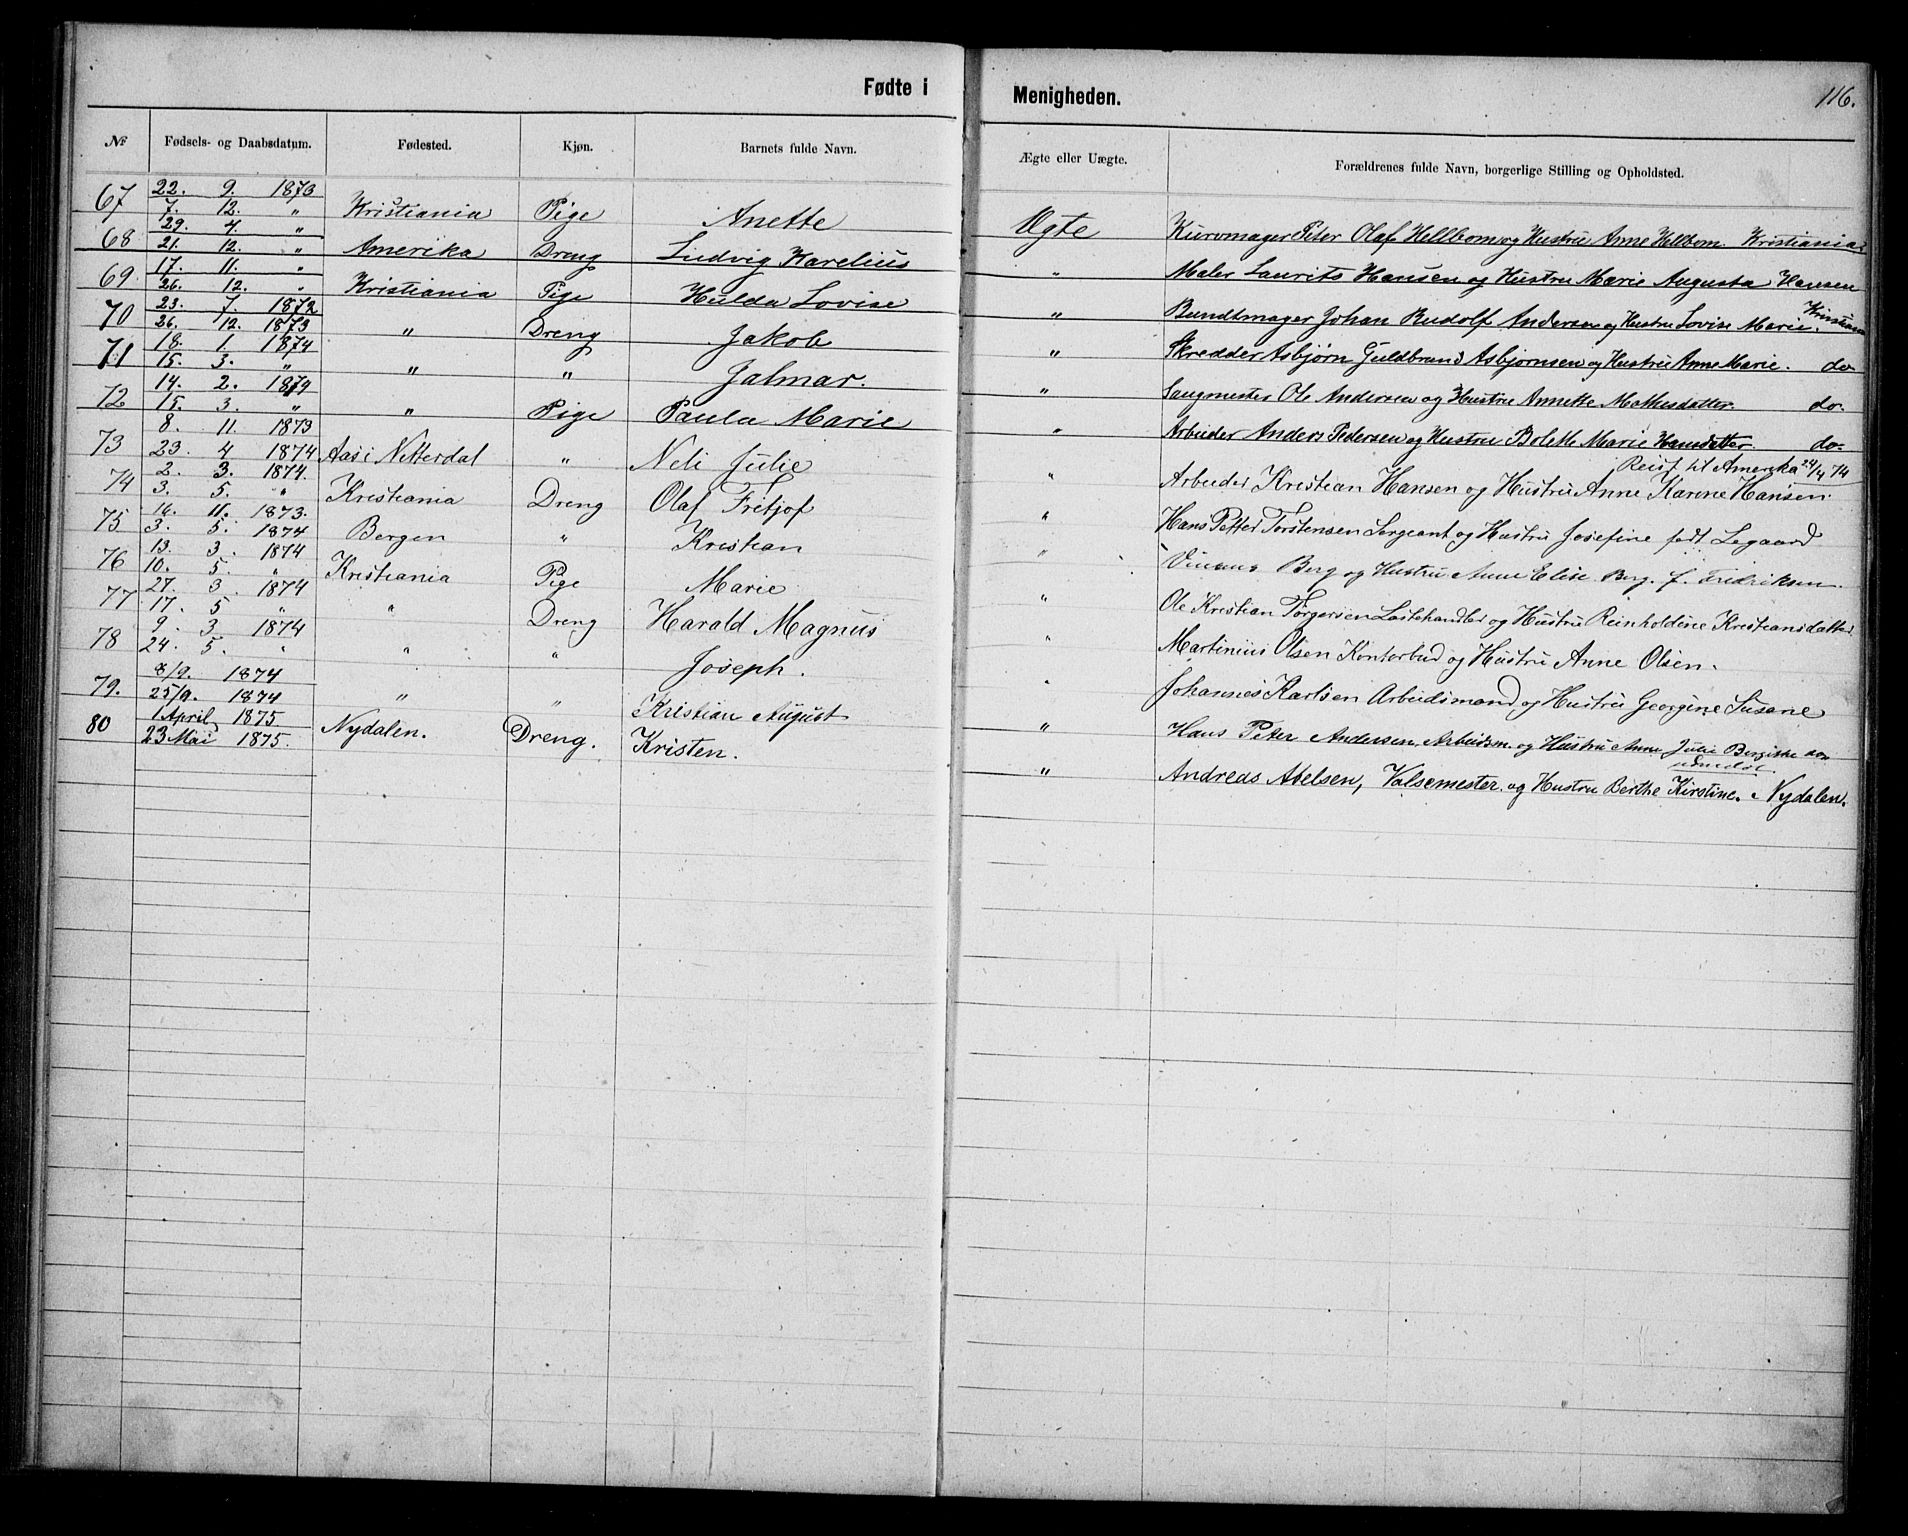 Fødte i Menigheden. 116.
№ Fødsels- og Daabsdatum. Fødested. Kjøn. Barnets fulde Navn. Ægte eller Uægte. Forældrenes fulde Navn, borgerlige Stilling og Opholdsted.
67 22. 9. 1873 7. 12. " Kristiania Pige Anette Ægte Kurvmager Peter Olaf Hellbom og Hustru Anne Hellbom. Kristiania
68 29. 7. " 21. 12. " Amerika Dreng Ludvig Karelius " Maler Laurits Hansen og Hustru Marie Augusta Hansen Kristiania
69 17. 11. " 26. 12. " Kristiania Pige Hulda Lovise " Bundtmager Johan Rudolf Andersen og Hustru Lovise Marie.
70 23. 7. 1872 26. 12. 1873 " Dreng Jakob " Skredder Asbjørn Guldbrand Asbjørnsen og Hustru Anne Marie. do
71 18. 1. 1874 15. 3. " " " Jalmar. " Saugmester Ole Andersen og Hustru Annette Mathisdatter. do.
72 14. 2. 1874 15. 3. " " Pige Paula Marie " Arbeider Anders Pedersen og Hustru Bolette Marie Hansdatter. do.
Reist til Amerika 24/4 74
73 8. 11. 1873 23. 4 1874 Aas i Nitterdal " Neli Julie " Arbeider Kristian Hansen og Hustru Anne Karine Hansen.
74 2. 3. 1874. 3. 5. " Kristiania Dreng Olaf Fritjof " Hans Petter Torstensen Sergeant og Hustru Josefine født Legaard
75 16. 11. 1873. 3. 5. 1874 Bergen " Kristian " Berg og Hustru Anne Elise Berg. f. Fredriksen.
76 13. 3. 1874 10. 5. " Kristiania Pige Marie " Ole Kristian Torgersen Lastehandler og Hustru Reinholdine Kristiansdatter.
77 27. 3. 1874 17. 5 " " Dreng Harald Magnus " Martinius Olsen Kontorbud og Hustru Anne Olsen.
78 9. 3. 1874 24. 5. " " " Joseph. " Johannes Karlsen Arbeidsmand og Hustru Georgine Susane
79. 8/9. 1874 25/9. 1874 " " Kristian August " Hans Peter Andersen, Arbeidsm. og Hustru Anne Julie
80 1 April 1875 23 Mai 1875. Nydalen. Dreng. Kristen. " Andreas Abelsen, Valsemester og Hustru Berthe Kirstine. Nydalen.